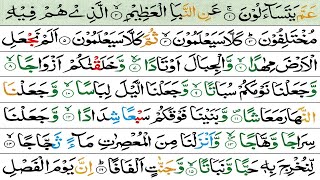 عَمَّ يَتَسَآءَلُوْنَ ۚ‏﴿۱﴾ عَنِ النَّبَاِ الْعَظِيْمِ ۙ‏﴿۲﴾ الَّذِىْ هُمْ فِيْهِ
مُخْتَلِفُوْنَ ؕ‏﴿۳﴾ كَلَّا سَيَعْلَمُوْنَ ۙ‏﴿۴﴾ ثُمَّ كَلَّا سَيَعْلَمُوْنَ‏﴿۵﴾ اَلَمْ نَجْعَلِ
الْاَرْضَ مِهٰدًا ۙ‏﴿۶﴾ وَّالْجِبَالَ اَوْتَادًا ۪ۙ‏﴿۷﴾ وَّخَلَقْنٰكُمْ اَزْوَاجًا ۙ‏﴿۸﴾
وَّجَعَلْنَا نَوْمَكُمْ سُبَاتًا ۙ‏﴿۹﴾ وَّجَعَلْنَا الَّيْلَ لِبَاسًا ۙ‏﴿۱۰﴾ وَّجَعَلْنَا
النَّهَارَ مَعَاشًا ۪‏﴿۱۱﴾ وَّبَنَيْنَا فَوْقَكُمْ سَبْعًا شِدَادًا ۙ‏﴿۱۲﴾ وَّجَعَلْنَا
سِرَاجًا وَّهَّاجًا ۪ۙ‏﴿۱۳﴾ وَّاَنْزَلْنَا مِنَ الْمُعْصِرٰتِ مَآءً ثَجَّاجًا ۙ‏﴿۱۴﴾
لِّنُخْرِجَ بِهٖ حَبًّا وَّنَبَاتًا ۙ‏﴿۱۵﴾ وَّجَنّٰتٍ اَلْفَافًا ؕ‏﴿۱۶﴾ اِنَّ يَوْمَ الْفَصْلِ